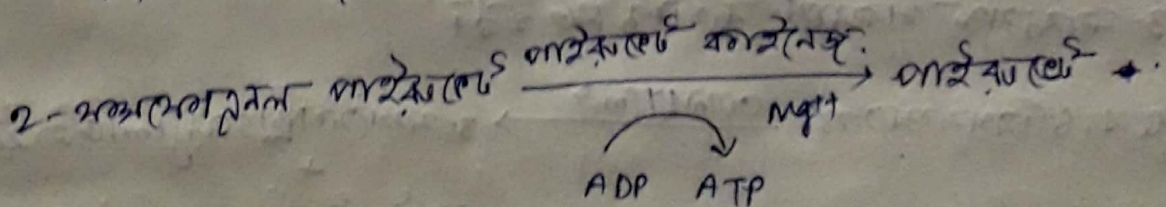 ২-ফসফোইনল পাইরুভেট পাইরুভেট কাইনেজ পাইরুভেট
Mg++
ADP ATP